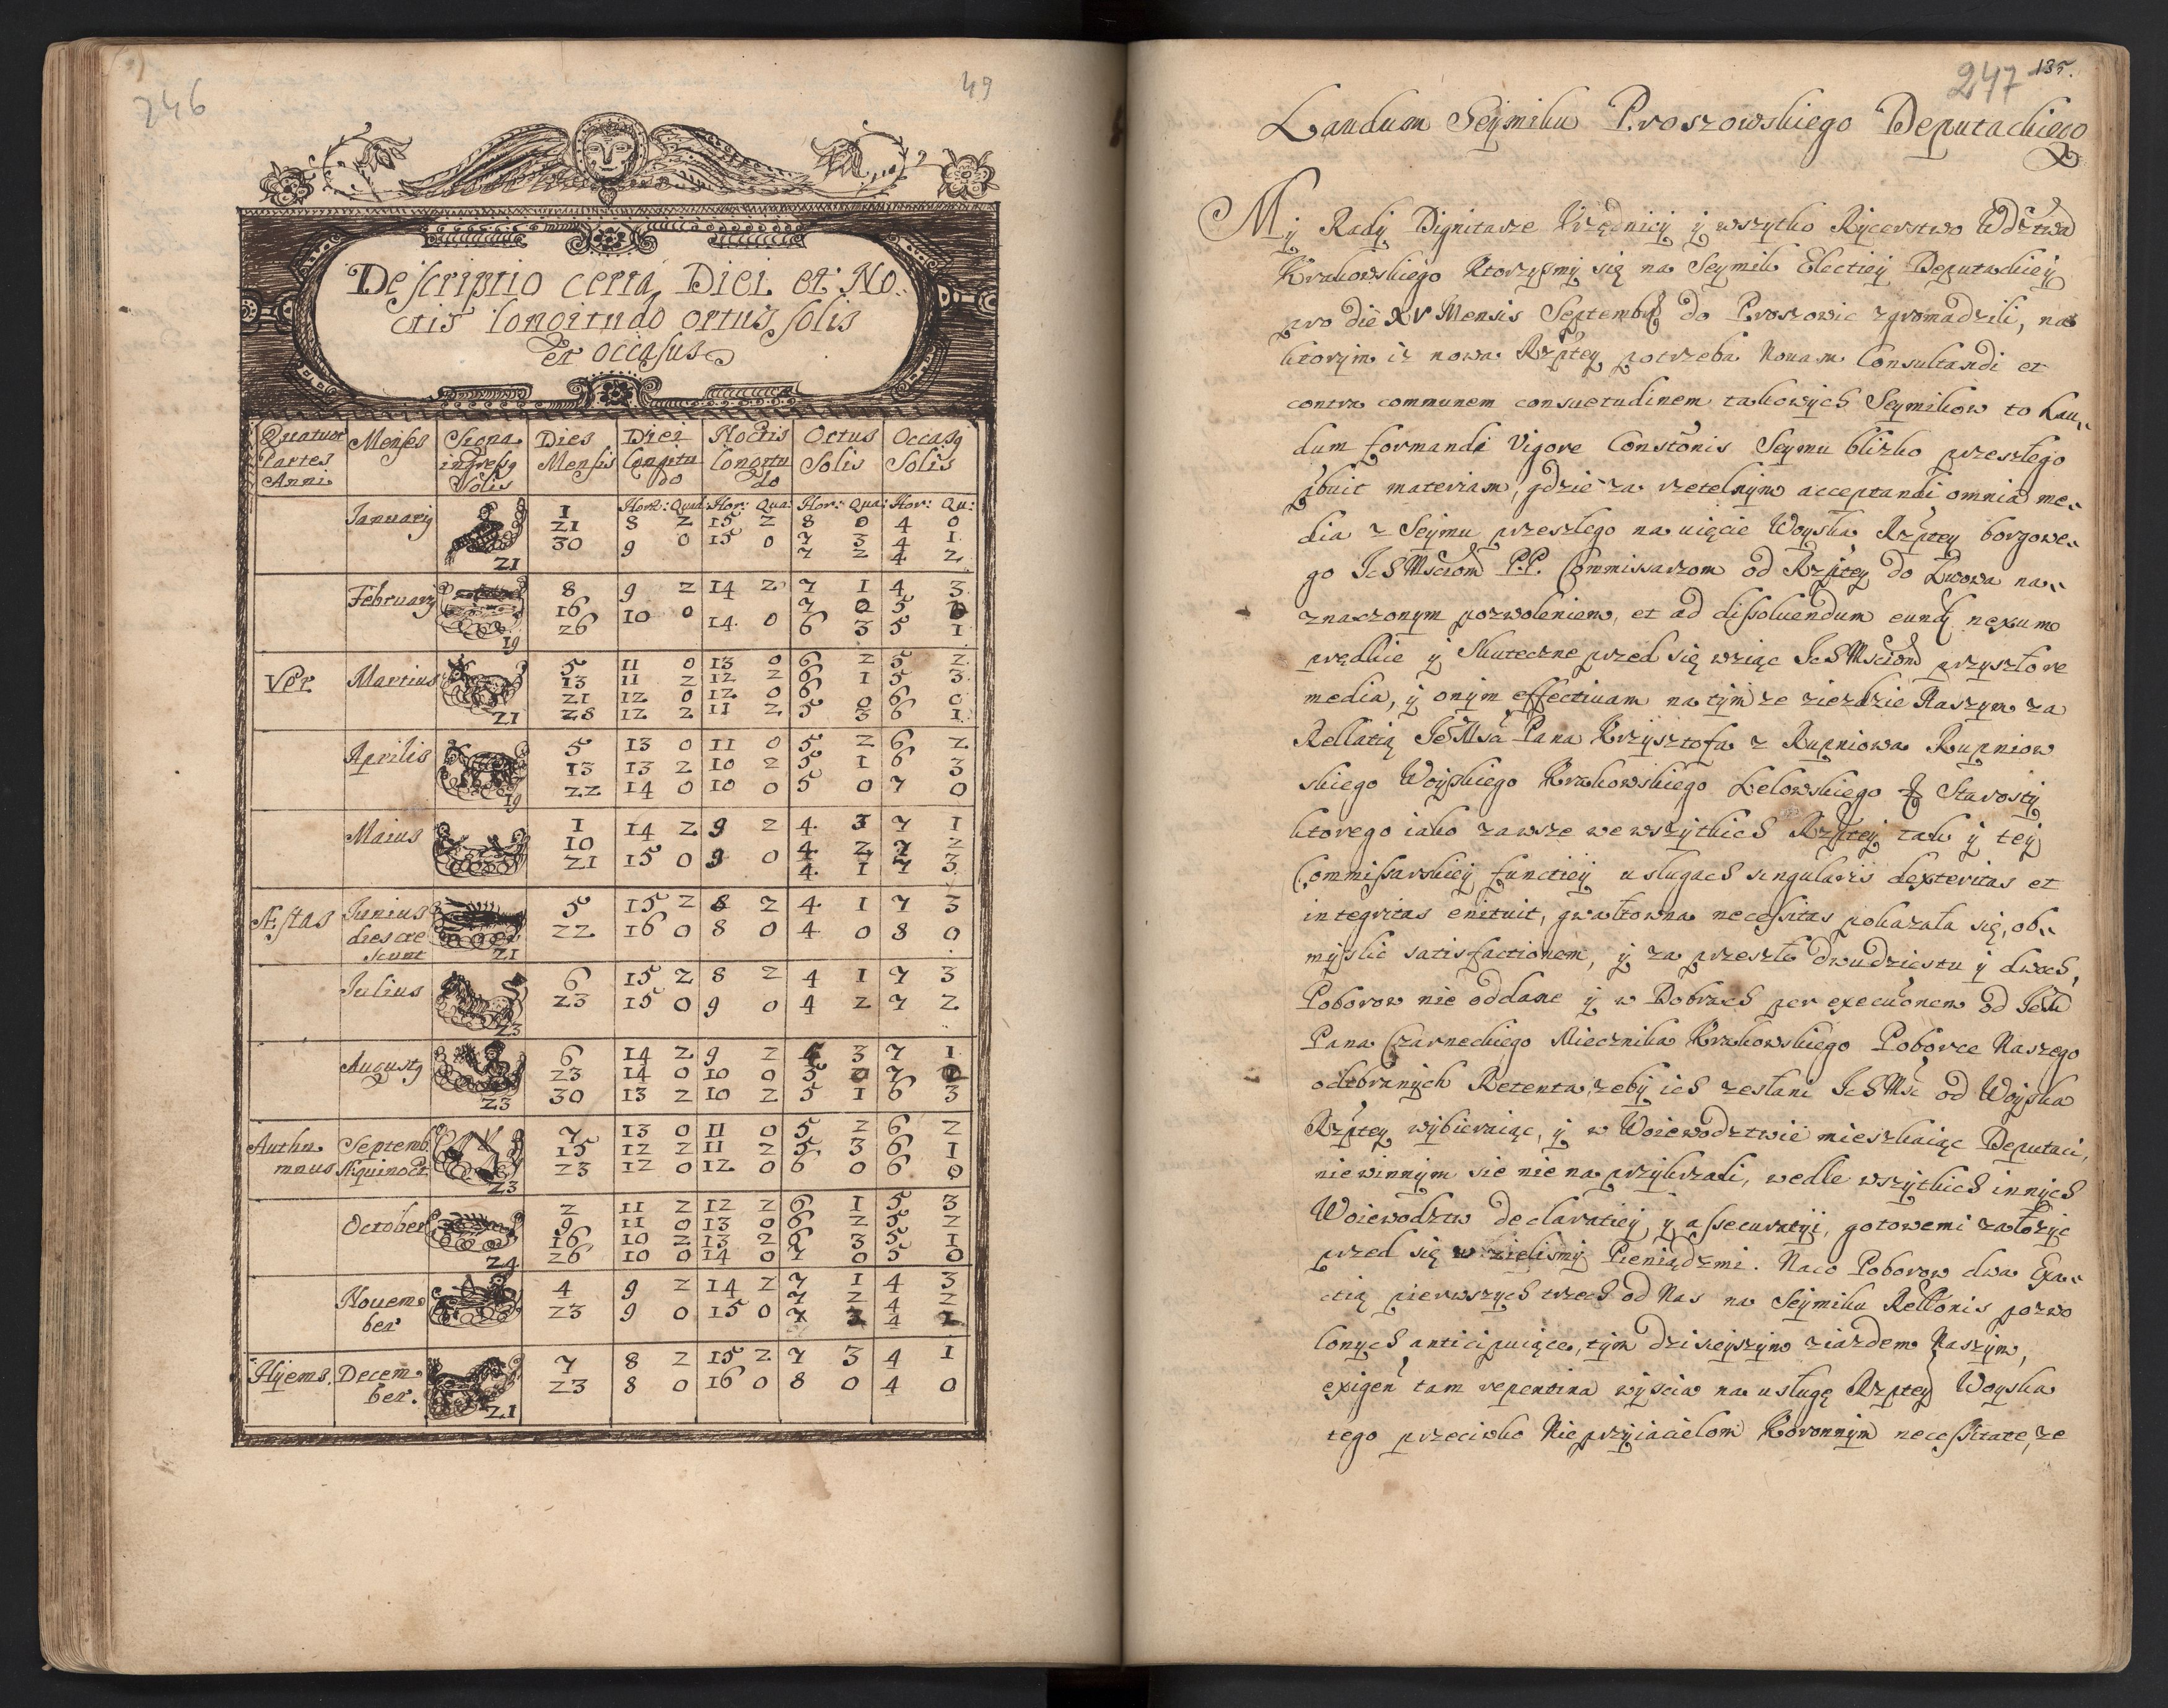 246
49
Descriptio certa Diei et No
ctis longitudo ortus solis
et occasus
Quatuor Menses Signa Dies Diei Noctis Ortus Occasq
Partes ingressq Mensis longitu longitu Solis Solis
Anni Solis do do
Hor: Qua: Hor: Qua: Hor: Qua: Hor: Qu:
Januarij 1 8 2 15 2 8 0 4 0
21 9 0 15 0 7 3 4 1
30 7 2 4 2
21
Februarij 8 9 2 14 2 7 1 4 3
16 10 0 14 0 7 0 5 0
26 6 3 5 1
19
Ver Martius 5 11 0 13 0 6 2 5 2
13 11 2 12 2 6 1 5 3
21 12 0 12 0 6 0 6 0
28 12 2 11 2 5 3 6 1
21
Aprilis 5 13 0 11 0 5 2 6 2
13 13 2 10 2 5 1 6 3
22 14 0 10 0 5 0 7 0
19
Maius 1 14 2 9 2 4 3 7 1
10 15 0 9 0 4 2 7 2
21 4 1 7 3
Æstas Junius 5 15 2 8 2 4 1 7 3
dies cre 22 16 0 8 0 4 0 8 0
scunt 21
Julius 6 15 2 8 2 4 1 7 3
23 15 0 9 0 4 2 7 2
23
Augustq 6 14 2 9 2 4 3 7 1
23 14 0 10 0 5 0 7 0
30 13 2 10 2 5 1 6 3
23
Authu Septemb. 7 13 0 11 0 5 2 6 2
mnus Æquinoct. 15 12 2 11 2 5 3 6 1
23 12 0 12 0 6 0 6 0
23
October 2 11 2 12 2 6 1 5 3
9 11 0 13 0 6 2 5 2
16 10 2 13 2 6 3 5 1
26 10 0 14 0 7 0 5 0
24
Nouem 4 9 2 14 2 7 1 4 3
ber 7 2 4 2
23 9 0 15 0 7 3 4 1
Hyems. Decem 7 8 2 15 2 7 3 4 1
ber. 23 8 0 16 0 8 0 4 0
21
247 135.
Laudum Seÿmiku Proszowskiego Deputackiego
Mÿ Radÿ Dignitarze Vrzędnicÿ ÿ wszytko Rÿcerstwo Wdztwa
Krakowskiego ktorzysmÿ się na Seymik Electieÿ Deputackieÿ
pro die XV Mensis Septembr do Proszowic zgromadzili, na
ktorym iż nowa Rzptey potrzeba Nouam Consultandi et
contra communem consuetudinem takowych Seymikow to Lau„
dum formandi Vigore Constonis Seymu blizko przeszłego
buit materiam, gdzie za rzetelnÿm acceptandi omnia me„
dia z Seÿmu przeszłego na uięcie Woyska Rzptey borgowe„
go IchMsciom PP. Commissarzom od Rzptey do Lwowa na„
znaczonym pozwoleniem, et ad dissoluendum eund nexum
prędkie ÿ skuteczne przed się wziąc IchMsciom przyszło re
media, ÿ onÿm effectiuam na tÿm ze zieżdzie Naszym za
Rellatią JeMsci Pana Krzysztofa z Rupniowa Rupniow
skiego Woÿskiego Krakowskiego Lelowskiego Starosty
ktorego iako zawsze we wszytkich Rzptey tak ÿ teÿ
Commissarskieÿ functieÿ usługach singularis dexteritas et
integritas enituit, gwałtowna necessitas pokazała się, ob„
mÿslic satisfactionem, ÿ za przeszłe dwudziestu ÿ dwoch,
Poborow nie oddane ÿ w Dobrach per executionem od JeM
Pana Czarneckiego Miecznika Krakowskiego Poborce Naszego
odebranych Retenta, żebÿ ich zesłani IchMsc od Woÿska
Rzptey wÿbieraiąc, ÿ w Woiewodztwie mieszkaiąc Deputaci,
niewinnym sie nie na przykrzali, wedle wszytkich innych
Woiewodztw declaratieÿ ÿ assecuratÿi, gotowemi założyc
przed się wzielismÿ Pieniądzmi. Naco Poborow dwa Exa„
ctią pierwszych trzech od Nas na Seÿmiku Relltonis pozwo
lonych anticipuiące, tÿm dzisieÿszÿm ziazdem Naszym,
exigen tam repentina wÿscia na usługę Rzptey Woyska
tego przeciwko Nieprzÿiacielom Koronnÿm necessitate, ze